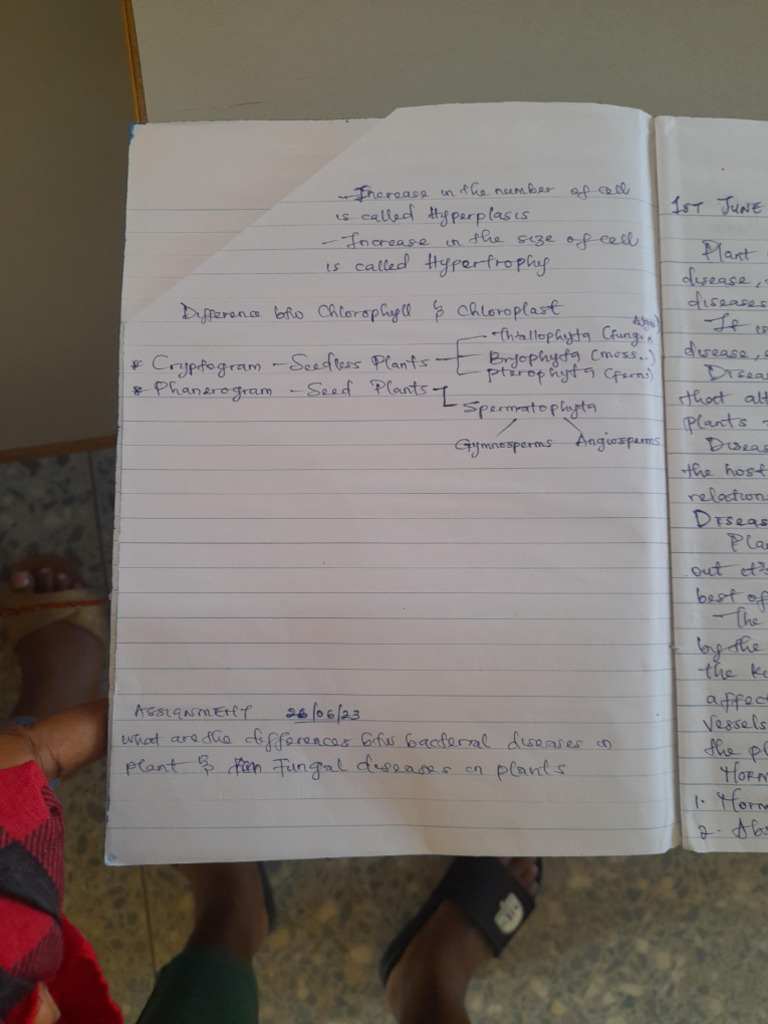 - Increase in the number of cell
is called Hyperplasis
- Increase in the size of cell
is called Hypertrophy
Difference b/w Chlorophyll & Chloroplast
* Cryptogram - Seedless Plants
Thallophyta (fungi,
Bryophyta (moss..)
Pterophyta (ferns)
* Phanerogram - Seed Plants
Spermatophyta
Gymnosperms Angiosperms
ASSIGNMENT 26/06/23
What are the differences b/w bacterial diseases in
plant & Fungal diseases in plants
1ST JUNE
Plant
disease,
diseases
It is
disease,
Disea
that alt
plants
Diseas
the host
relation
DISEAS
Pla
out its
best of
The
by the
the
affect
vessels
the pl
HORM
1. Horm
2. Abs